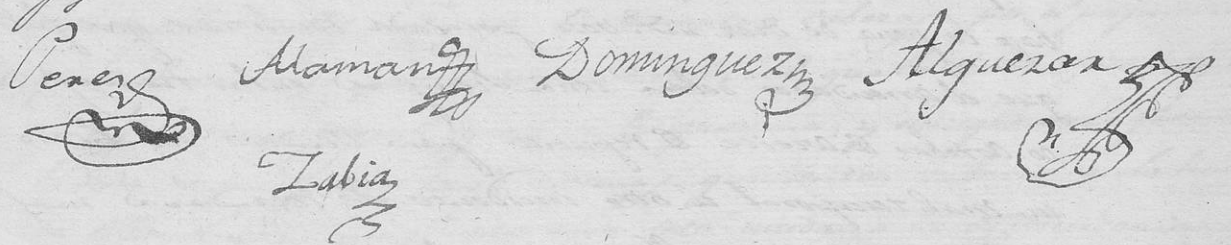 Perez Alaman Dominguez Alquezar
Zabia